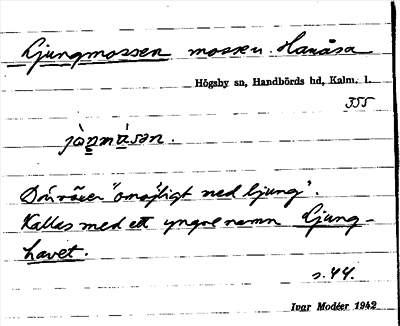 Ljungmossen mossen. Hanåsa
Högsby sn, Handbörds hd, Kalm. l.
355
jàŋmósan.
Där växer "omöjligt med ljung".
Kallas med ett yngre namn Ljung-
havet.
s. 44.
Ivar Modéer 1942